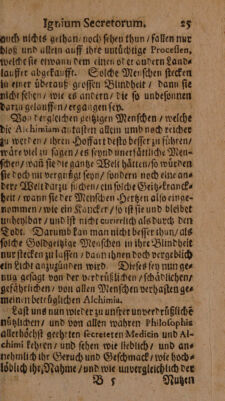 Ignium Secretorum. 25
auch nichts gethan/ noch sehen thun/ sollen nur
bloß und allein auff ihre untüchtige Processen/
welche sie etwann dem einen oder andern Land=
lauffer abgekaufft. Solche Menschen stecken
in einer überauß grossen Blindheit / dann sie
sehen / wie es andern / die so unbesonnen
darzu gelauffen/ ergangen sey.
Von dergleichen geitzigen Menschen / welche
die Alchimiam antasten allein umb noch reicher
zu werden / ihren Hoffart desto besser zu führen/
wäre viel zu sagen / es seynd unersättliche Men=
schen / wañ sie die gantze Welt hätten/ so würden
sie doch nit vergnügt seyn / sondern noch eine an=
dere Welt darzu suchen / ein solche Geitz=kranck=
heit / wann sie der Menschen=Hertzen also einge=
nommen / wie ein Kancker / so ist sie und bleibet
unheylbar / und ist nicht curierlich als durch den
Todt. Darumb kan man nicht besser thun/ als
solche Goldgeitzige Menschen in ihre Blindheit
nur stecken zu lassen / dann ihnen doch vergeblich
ein Licht anzuzünden wird. Dieses sey nun ge=
nug gesagt von der verdrüßlichen / schädlichen/
gefährlichen / von allen Menschen verhasten ge=
meinen betrüglichen Alchimia.
Last uns nun wieder zu unser unverdrüßliche
nützlichen / und von allen wahren Philosophis
allerhöchst geehrten secreteten Medicin und Al=
chimi kehren / und sehen wie lieblich / und an=
nehmlich ihr Geruch und Geschmack/ wie hoch=
löblich ihr Nahme/ und wie unvergleichlich der
B 5 Nutzen